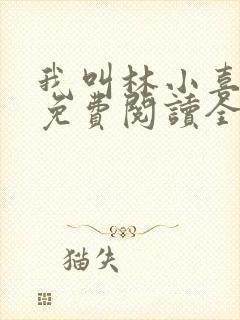 我叫林小喜
免費閱讀全
猫失